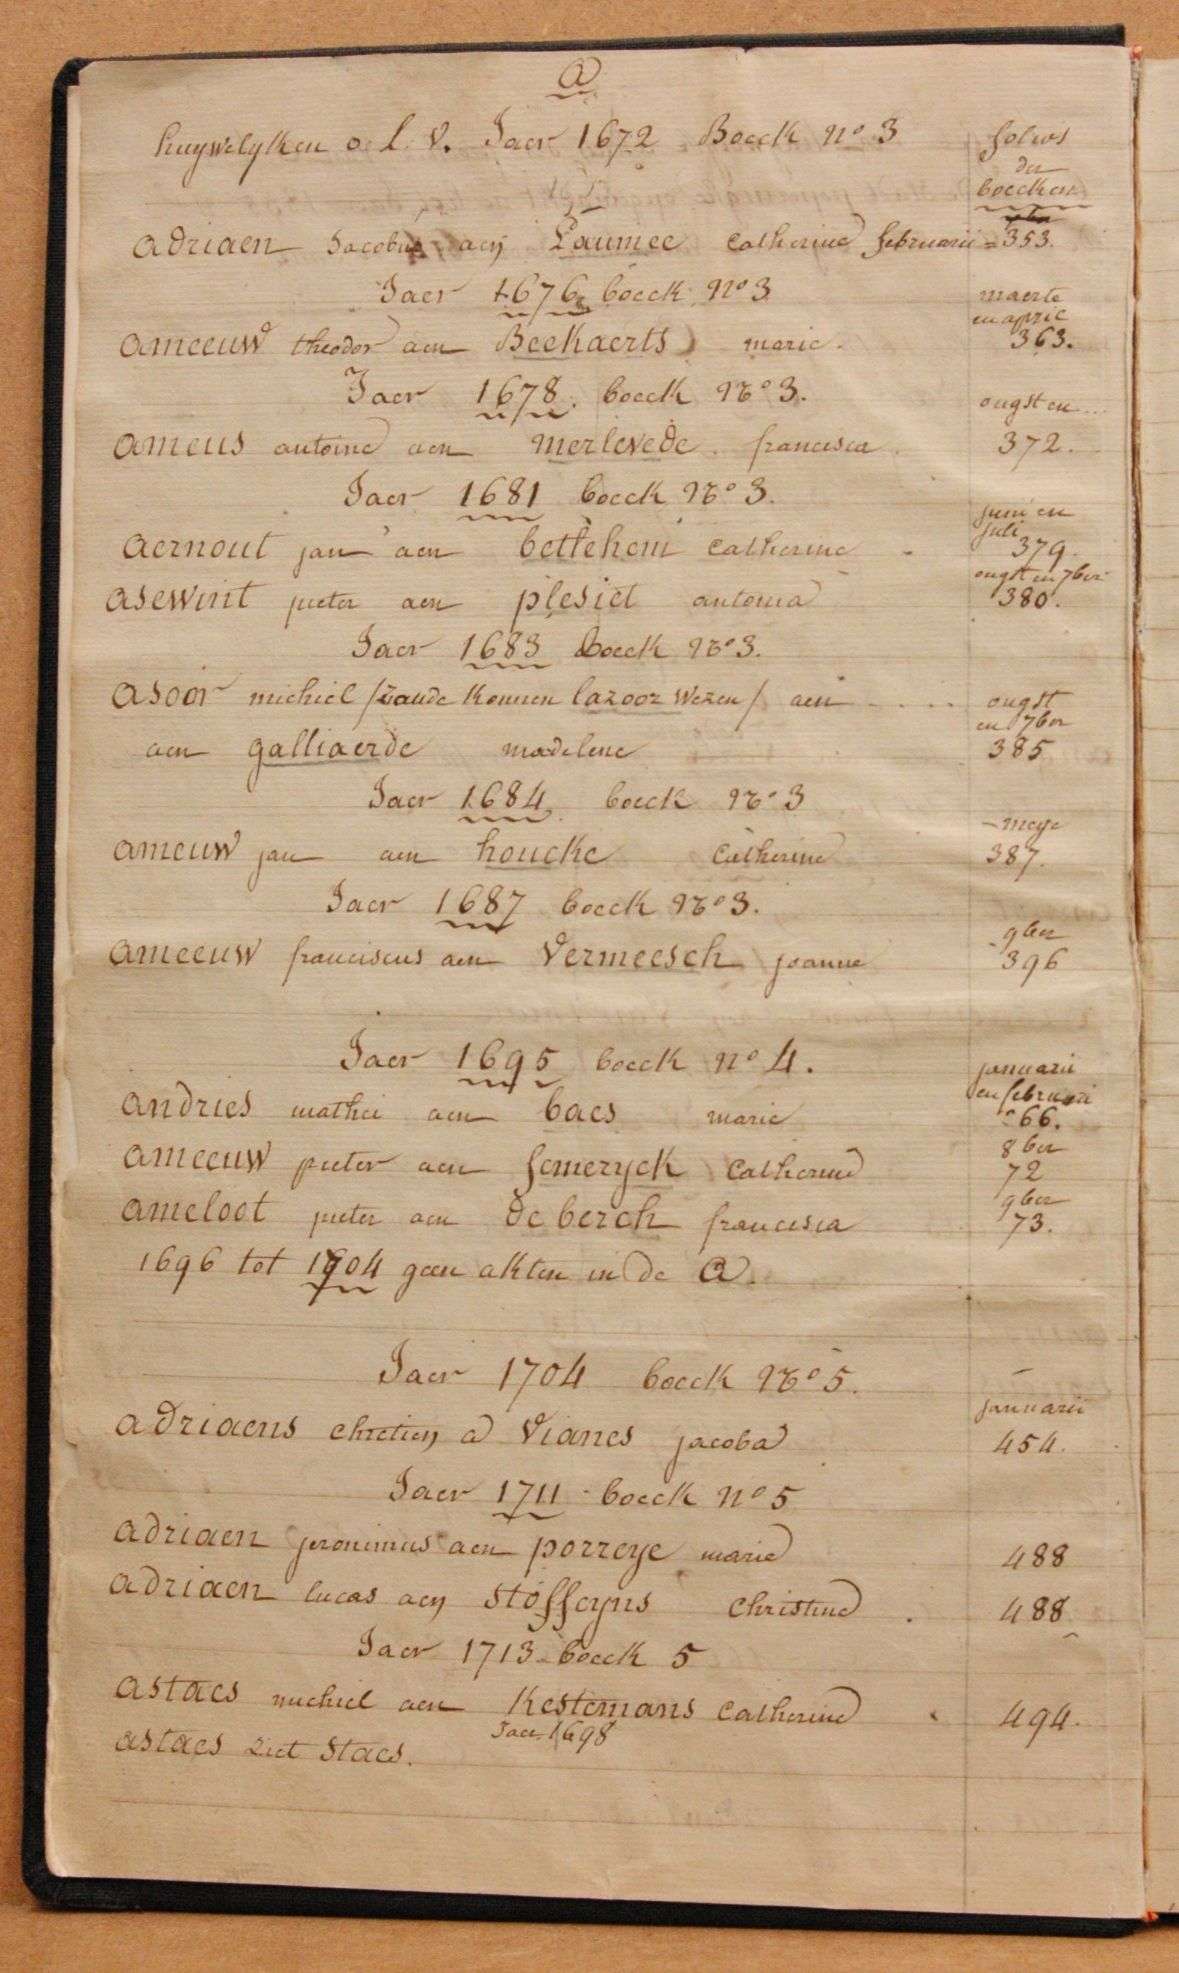 a
huywelyken o. L. V. Jaer 1672 Boeck No 3 folios
der
boecken
adriaen Jacobus aen Laumee Catherine februarii = 353.
Jaer 1676 boeck No 3 maerte
en april
ameeuw theodor aen Beekaerts marie. 363.
Jaer 1678. boeck No 3. ougst en ...
ameus antoine aen merlevede francisca. 372.
Jaer 1681 boeck No 3. juni en
juli
aernout jan aen bethehem Catherine 379.
ougst en 7ber
asewint pieter aen plesiet antonia 380.
Jaer 1683 boeck No 3.
asoor michiel /zaude konnen lazoor wezen/ aen .... ougst
en 7ber
aen galliaerde madelene 385
Jaer 1684. boeck No 3
meye
ameuw jan aen houcke Catherine 387.
Jaer 1687 boeck No 3.
9ber
ameeuw franciscus aen Vermeesch joanne 396
Jaer 1695 boeck no 4. januarii
en februari
andries mathei aen baes marie 66.
8ber
ameeuw pieter aen semeryck Catherine 72
9ber
ameloot pieter aen de berch francisca 73.
1696 tot 1704 geen akten in de a.
Jaer 1704 boeck No 5.
januarii
adriaens chretien a Vianes jacoba 454.
Jaer 1711 - boeck No 5
adriaen jeronimus aen porreye marie 488
adriaen lucas aen stoffeyns Christine . 488
Jaer 1713 - boeck 5
astaes michiel aen Kestemans Catherine 494.
Jaer 1698
astaes ziet staes.